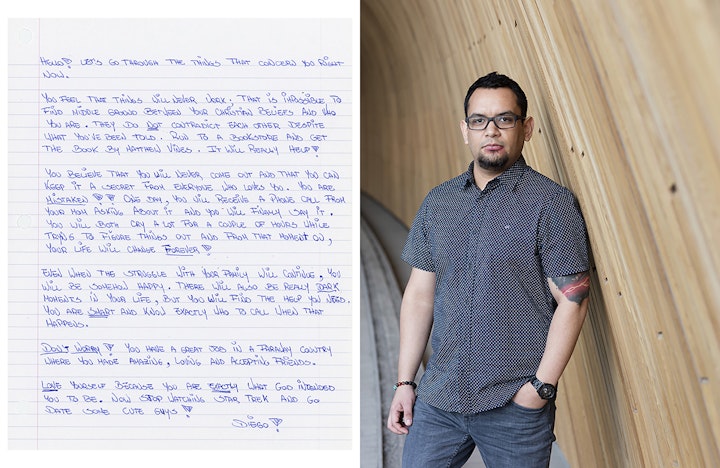 HELLO! LET'S GO THROUGH THE THINGS THAT CONCERN YOU RIGHT
NOW.
YOU FEEL THAT THINGS WILL NEVER WORK; THAT IS IMPOSSIBLE TO
FIND MIDDLE GROUND BETWEEN YOUR CHRISTIAN BELIEFS AND WHO
YOU ARE. THEY DO NOT CONTRADICT EACH OTHER DESPITE
WHAT YOU'VE BEEN TOLD. RUN TO A BOOKSTORE AND GET
THE BOOK BY MATTHEW VINES. IT WILL REALLY HELP!
YOU BELIEVE THAT YOU WILL NEVER COME OUT AND THAT YOU CAN
KEEP IT A SECRET FROM EVERYONE WHO LOVES YOU. YOU ARE
MISTAKEN!! ONE DAY, YOU WILL RECEIVE A PHONE CALL FROM
YOUR MOM ASKING ABOUT IT AND YOU WILL FINALLY SAY IT.
YOU WILL BOTH CRY A LOT FOR A COUPLE OF HOURS WHILE
TRYING TO FIGURE THINGS OUT AND FROM THAT MOMENT ON,
YOUR LIFE WILL CHANGE FOREVER!
EVEN WHEN THE STRUGGLE WITH YOUR FAMILY WILL CONTINUE, YOU
WILL BE SOMEHOW HAPPY. THERE WILL ALSO BE REALLY DARK
MOMENTS IN YOUR LIFE, BUT YOU WILL FIND THE HELP YOU NEED.
YOU ARE SMART AND KNOW EXACTLY WHO TO CALL WHEN THAT
HAPPENS.
DON'T WORRY! YOU HAVE A GREAT JOB IN A FARAWAY COUNTRY
WHERE YOU MADE AMAZING, LOVING AND ACCEPTING FRIENDS.
LOVE YOURSELF BECAUSE YOU ARE EXACTLY WHAT GOD INTENDED
YOU TO BE. NOW STOP WATCHING STAR TREK AND GO
DATE SOME CUTE GUYS!
DIEGO!